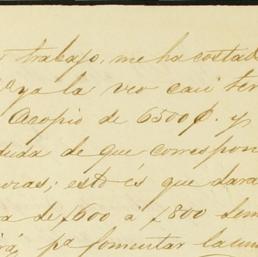 trabajo, me ha costad
ya la veo casi ter
Acopio de 6500 ₡. y
de que correspon
uras; esto es que dara
a de £600 á £800 
pa fomentar la